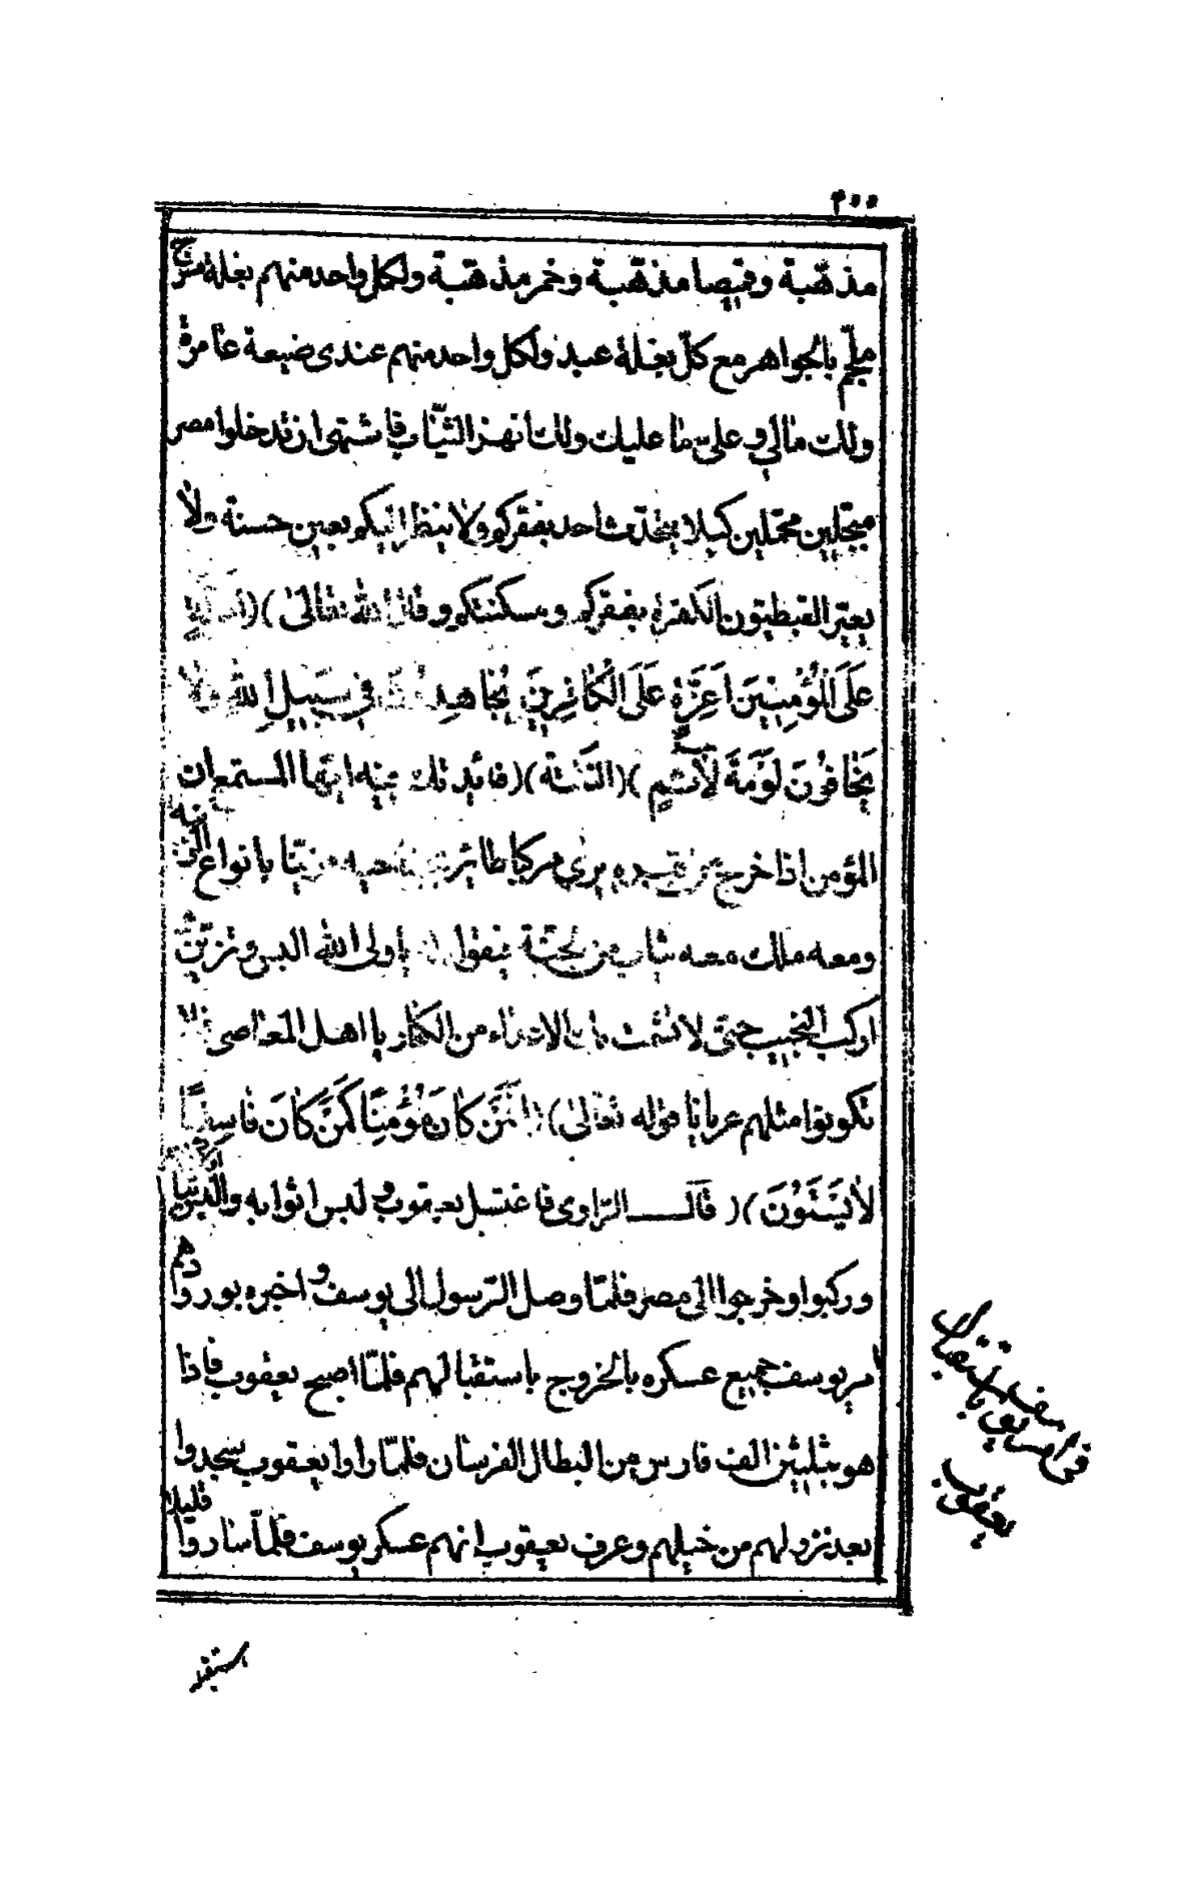 ٢٠٠
مذهّبة وقميصا مذهّبة وخمر مذهّبة ولكل واحد منهم بغلة مسرج
ملجّم بالجواهر مع كلّ بغلة عبد ولكل واحد منهم عندى ضيعة عامرة
ولك مالي وعليّ ما عليك ولك انهذ الثيّاب فاشتهى ان تدخلوا مصر
مبجّلين محمّلين كيلا يتحدّث احد بفقركم ولا ينظر اليكم بعين حسنة ولا
يعيّر القبطيّون الكفرة بفقركم ومسكنتكم وقال الله تعالى )(
عَلَى المُؤْمِنِينَ اَعِزَّةٍ عَلَى الْكَافِرِينَ يُجَاهِدُونَ فِي سَبِيلِ اللهِ وَلَا
يَخَافُونَ لَوْمَةَ لَآئِمٍ )( النكتة )( فائد تلك ايّها المستمعان
المؤمن اذا خرج من قبره يرى مركبا طائر مزيّنا بانواع الزينة
ومعه ملك معه ثياب من الجنّة فيقول يا ولى الله البس وتزيّن
اركب النجيب حتى لا تشمت بك الاعداء من الكفار يا اهل المعاصى
تكونوا مثلهم عريانا قوله تعالى )( اَفَمَنْ كَانَ مُؤْمِنًا كَمَنْ كَانَ فَاسِقًا
لَا يَسْتَوُنَ )( قال الرّاوى فاغتسل يعقوب ولبس اثوابه
وركبوا وخرجوا الى مصر فلمّا وصل الرّسول الى يوسف واخبره بورودهم
امر يوسف جميع عسكره بالخروج باستقبالهم فلمّا اصبح يعقوب فاذا
هو بثلثين الف فارس من البطال الفرسان فلمّا راوا يعقوب سجدوا
بعد نزولهم من خيلهم وعرف يعقوب انهم عسكر يوسف فلمّا ساروا قليلا
يوسف باستقبال
يعقوب
استقبله